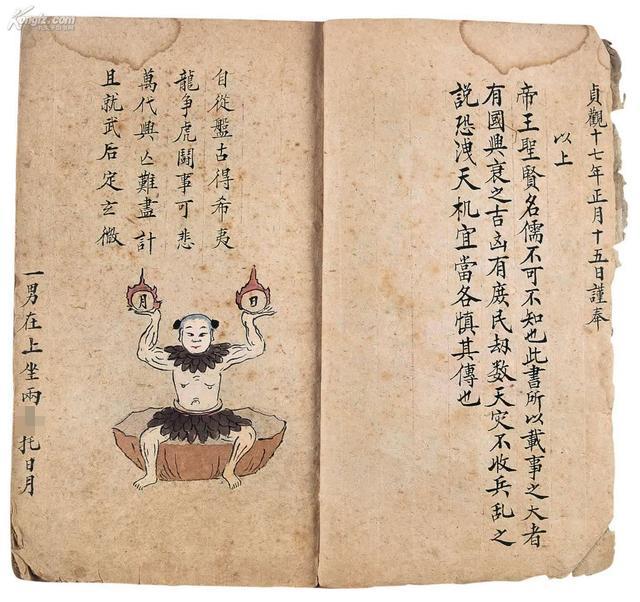 貞觀十七年正月十五日謹奉
以上
帝王聖賢名儒不可不知也此書所以載事之大者
有國興衰之吉凶有庶民劫数天灾不收兵乱之
説恐洩天机宜當各慎其傳也
自從盤古得希夷
龍爭虎鬪事可悲
萬代興亾難盡計
且就武后定玄微
日
月
一男在上坐兩 托日月
Kongfz.com